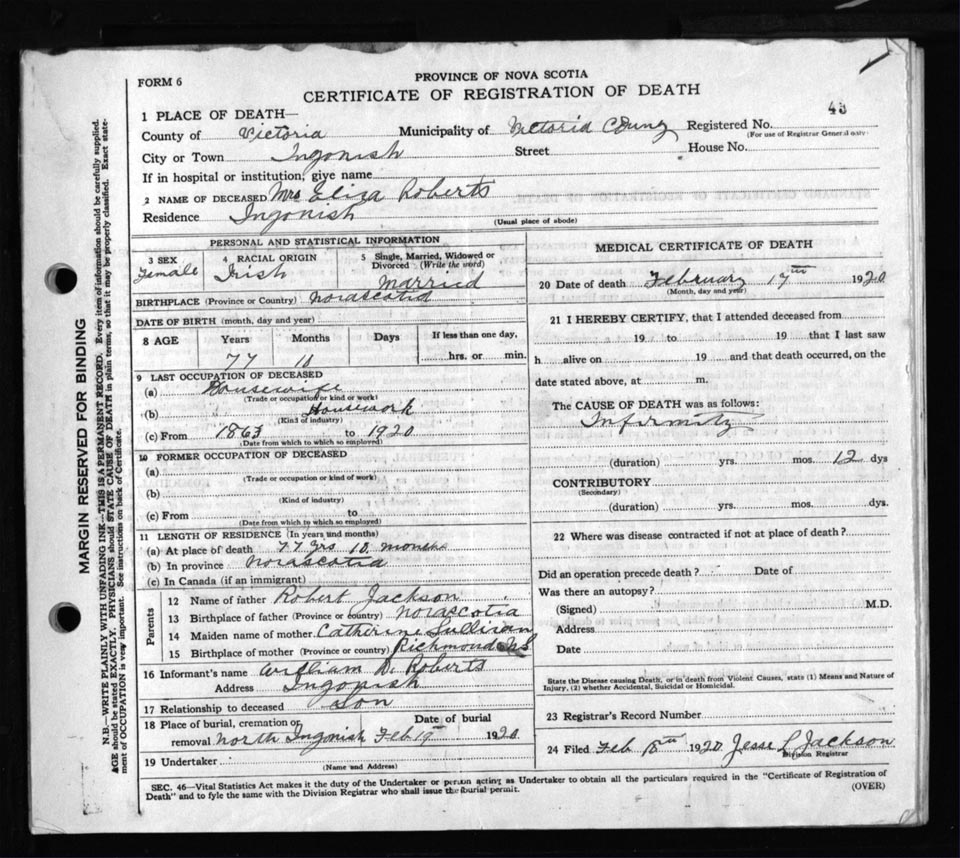 FORM 6
PROVINCE OF NOVA SCOTIA
CERTIFICATE OF REGISTRATION OF DEATH
43
1 PLACE OF DEATH—
County of Victoria Municipality of Victoria County Registered No.
(For use of Registrar General only)
City or Town Ingonish Street House No.
If in hospital or institution, give name
2 NAME OF DECEASED Mrs Eliza Roberts
Residence Ingonish
(Usual place of abode)
PERSONAL AND STATISTICAL INFORMATION
3 SEX Female
4 RACIAL ORIGIN Irish
5 Single, Married, Widowed or Divorced (Write the word) Married
BIRTHPLACE (Province or Country) Novascotia
DATE OF BIRTH (month, day and year)
8 AGE Years Months Days If less than one day,
77 10 hrs. or min.
9 LAST OCCUPATION OF DECEASED
(a) Housewife
(Trade or occupation or kind or work)
(b) Housework
(Kind of industry)
(c) From 1863 to 1920
(Date from which to which so employed)
10 FORMER OCCUPATION OF DECEASED
(a)
(Trade or occupation or kind of work)
(b)
(Kind of industry)
(c) From to
(Date from which to which so employed)
11 LENGTH OF RESIDENCE (In years and months)
(a) At place of death 77 yrs 10 months
(b) In province Novascotia
(c) In Canada (if an immigrant)
Parents
12 Name of father Robert Jackson
13 Birthplace of father (Province or country) Novascotia
14 Maiden name of mother Catherine Sullivan
15 Birthplace of mother (Province or Country) Richmond NS
16 Informant's name William D. Roberts
Address Ingonish
17 Relationship to deceased Son
18 Place of burial, cremation or removal North Ingonish
Date of burial Feb 19th 1920
19 Undertaker
(Name and Address)
MEDICAL CERTIFICATE OF DEATH
20 Date of death February 17th 1920
(Month, day and year)
21 I HEREBY CERTIFY, that I attended deceased from
19 to 19 that I last saw
h alive on 19 and that death occurred, on the
date stated above, at m.
The CAUSE OF DEATH was as follows:
Infirmity
(duration) yrs. mos. 12 dys
CONTRIBUTORY
(Secondary)
(duration) yrs. mos. dys.
22 Where was disease contracted if not at place of death?
Did an operation precede death? Date of
Was there an autopsy?
(Signed) M.D.
Address
Date
State the Disease causing Death, or in death from Violent Causes, stata (1) Means and Nature of
Injury, (2) whether Accidental, Suicidal or Homicidal.
23 Registrar's Record Number
24 Filed Feb 18th 1920 Jesse L Jackson
Division Registrar
SEC. 46—Vital Statistics Act makes it the duty of the Undertaker or person acting as Undertaker to obtain all the particulars required in the "Certificate of Registration of
Death" and to fyle the same with the Division Registrar who shall issue the burial permit.
(OVER)
MARGIN RESERVED FOR BINDING
N.B.—WRITE PLAINLY WITH UNFADING INK—THIS IS A PERMANENT RECORD. Every item of information should be carefully supplied.
AGE should be stated EXACTLY. PHYSICIANS should STATE CAUSE OF DEATH in plain terms, so that it may be properly classified. Exact state-
ment of OCCUPATION is very important. See instructions on back of Certificate.